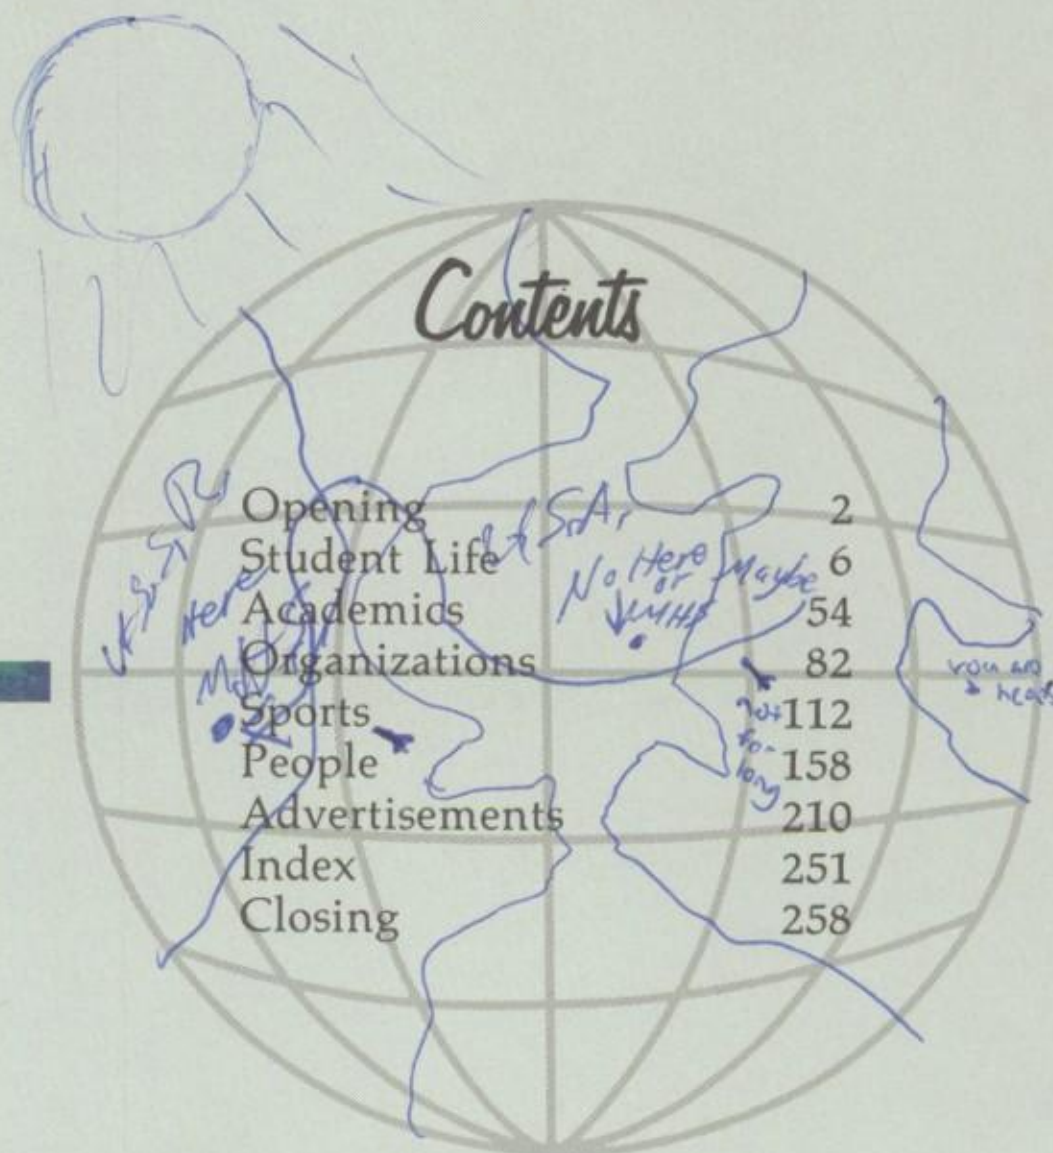 Contents
Opening 2
Student Life 6
Academics 54
Organizations 82
Sports 112
People 158
Advertisements 210
Index 251
Closing 258
U.S.S.R
Here
U.S.A.
No Here
or
Maybe
you are
not
for
long